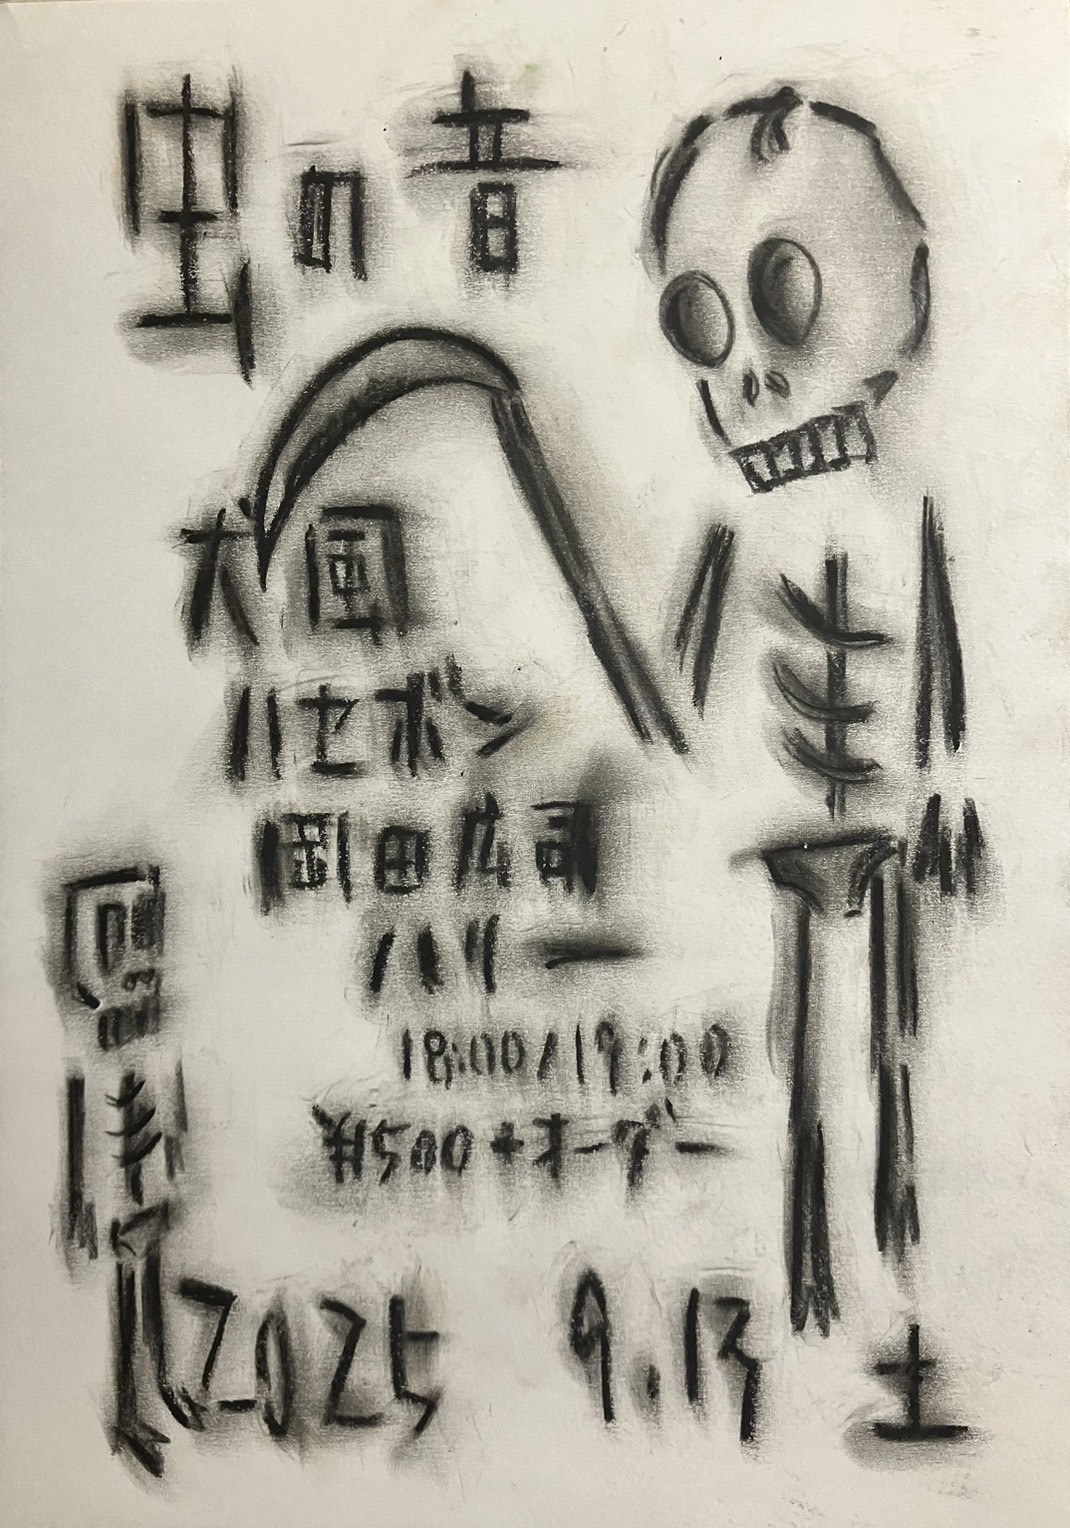 虫の音
犬風
ハセボン
岡田広司
ハリー
18:00/19:00
¥1500+オーダー
2025 9.13 土